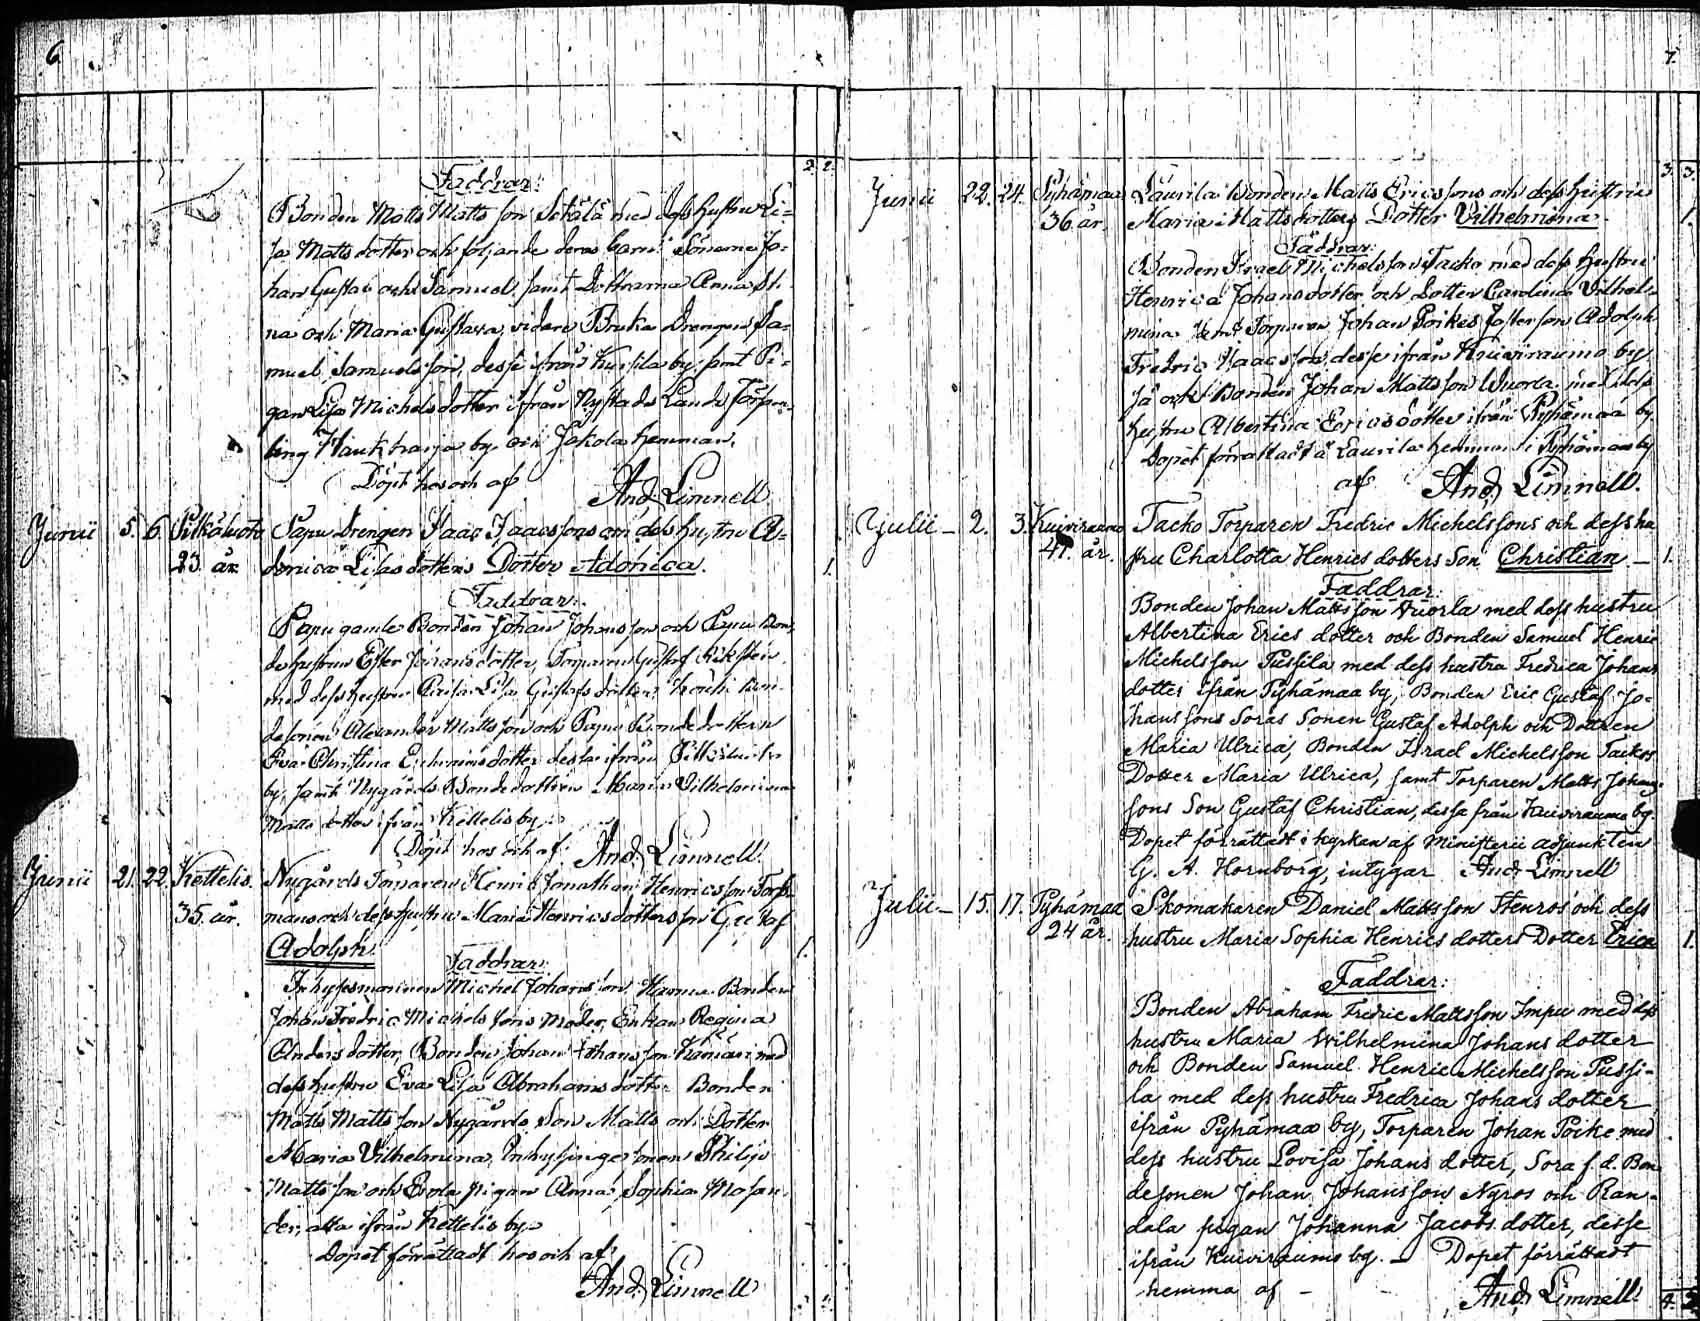 6.
2. 2.
Faddrar:
Bonden Matts Mattsson Sckälä med dess hustru Li=
sa Matts dotter och följande deras barn: Sönerna Jo=
han Gustaf och Samuel samt Döttrarna Anna Sti
na och Maria Gustava, vidare Bruka Drengen Sa=
muel Samuelsson, desse ifrån by, samt Pi=
gan Lisa Michelsdotter ifrån Nystads Lands Försam=
ling by och Jakola hemman.
Döpt hos och af
And. Limnell
Junii 5. 6. Pitkäluoto Papu Drengen Isaac Isaacssons och dess hustru A=
23. år. donica Lisas dotters Dotter Adonica. 1.
Faddrar:
Papu gamle Bonden Johan Johansson och Papu Bon=
de hustrun Ester Johansdotter, Torparen Gustaf
med dess hustru Caisa Lisa Gustafsdotter, bon=
desonen Alexander Mattsson och Papu Bondedottern
Eva Christina dotter desse ifrån Pitkäluoto
by, samt Nygårds Bondedottren Maria Vilhelmina
Matts dotter ifrån Kettelis by.
Döpt hos och af And. Limnell.
Junii 21. 22. Kettelis. Nygårds Torparen Henric Jonathan Henricsson
35. år. mans och dess hustru Maria Henricsdotters son Gustaf
Adolph 1.
Faddrar:
Inhysesmannen Michel Johansson, Bonden
Johan Fredric Michelssons Moder, Enkan Regina
Anders dotter, Bonden Johan Johansson med
dess hustru Eva Lisa Abrahamsdotter Bonden
Matts Mattsson Nygårds Son Matts och Dotter
Maria Vilhelmina, Inhysinge sonen Philip
Mattsson och Erola pigan Anna Sophia Mosan
der, alla ifrån Kettelis by.
Dopet förrättadt hos och af
And. Limnell
7.
3. 3.
Junii 22. 24. Pyhämaa Laurila Bonden Matts Ericssons och dess hustru
36. år. Maria Mattsdotters Dotter Vilhelmina. 1.
Faddrar:
Bonden Israel Michelsson Tacko med dess hustru
Henrica Johansdotter och Dotter Carolina Vilhel=
mina samt Torparen Johan Poikes fosterson Adolph
Fredric Isaacsson, desse ifrån Kuivirauma by,
så ock Bonden Johan Mattsson Wuorla med dess
hustru Albertina Ericsdotter ifrån Pyhämaa by
Dopet förrättadt å Laurila hemman i Pyhämaa by
af And. Limnell.
Julii – 2. 3. Kuivirauma Tacko Torparen Fredric Michelssons och dess hu
41. år. stru Charlotta Henrics dotters Son Christian – 1.
Faddrar:
Bonden Johan Mattsson Vuorla med dess hustru
Albertina Erics dotter och Bonden Samuel Henric
Michelsson Pussila med dess hustru Fredrica Johans
dotter ifrån Pyhämaa by, Bonden Eric Gustaf Jo=
hanssons Soras Sonen Gustaf Adolph och Dottren
Maria Ulrica, Bonden Israel Michelsson Tackos
Dotter Maria Ulrica, samt Torparen Matts Johans=
sons Son Gustaf Christian, dessa från Kuivirauma by.
Dopet förrättadt i kyrkan af Ministerii adjunkten
G. A. Hornborg, intygar And. Limnell
Julii – 15. 17. Pyhämaa Skomakaren Daniel Mattsson Stenros och dess
24 år. hustru Maria Sophia Henrics dotters Dotter Erica 1.
Faddrar:
Bonden Abraham Fredric Mattsson Impu med dess
hustru Maria Wilhelmina Johans dotter
och Bonden Samuel Henric Michelsson Pussi-
la med dess hustru Fredrica Johans dotter
ifrån Pyhämaa by, Torparen Johan Poike med
dess hustru Lovisa Johans dotter, Sora f. d. Bon
desonen Johan Johansson Nyros och Ran-
dala pigan Johanna Jacobs dotter, desse
ifrån Kuivirauma by. – Dopet förrättadt
hemma af – And. Limnell.
4. 3.